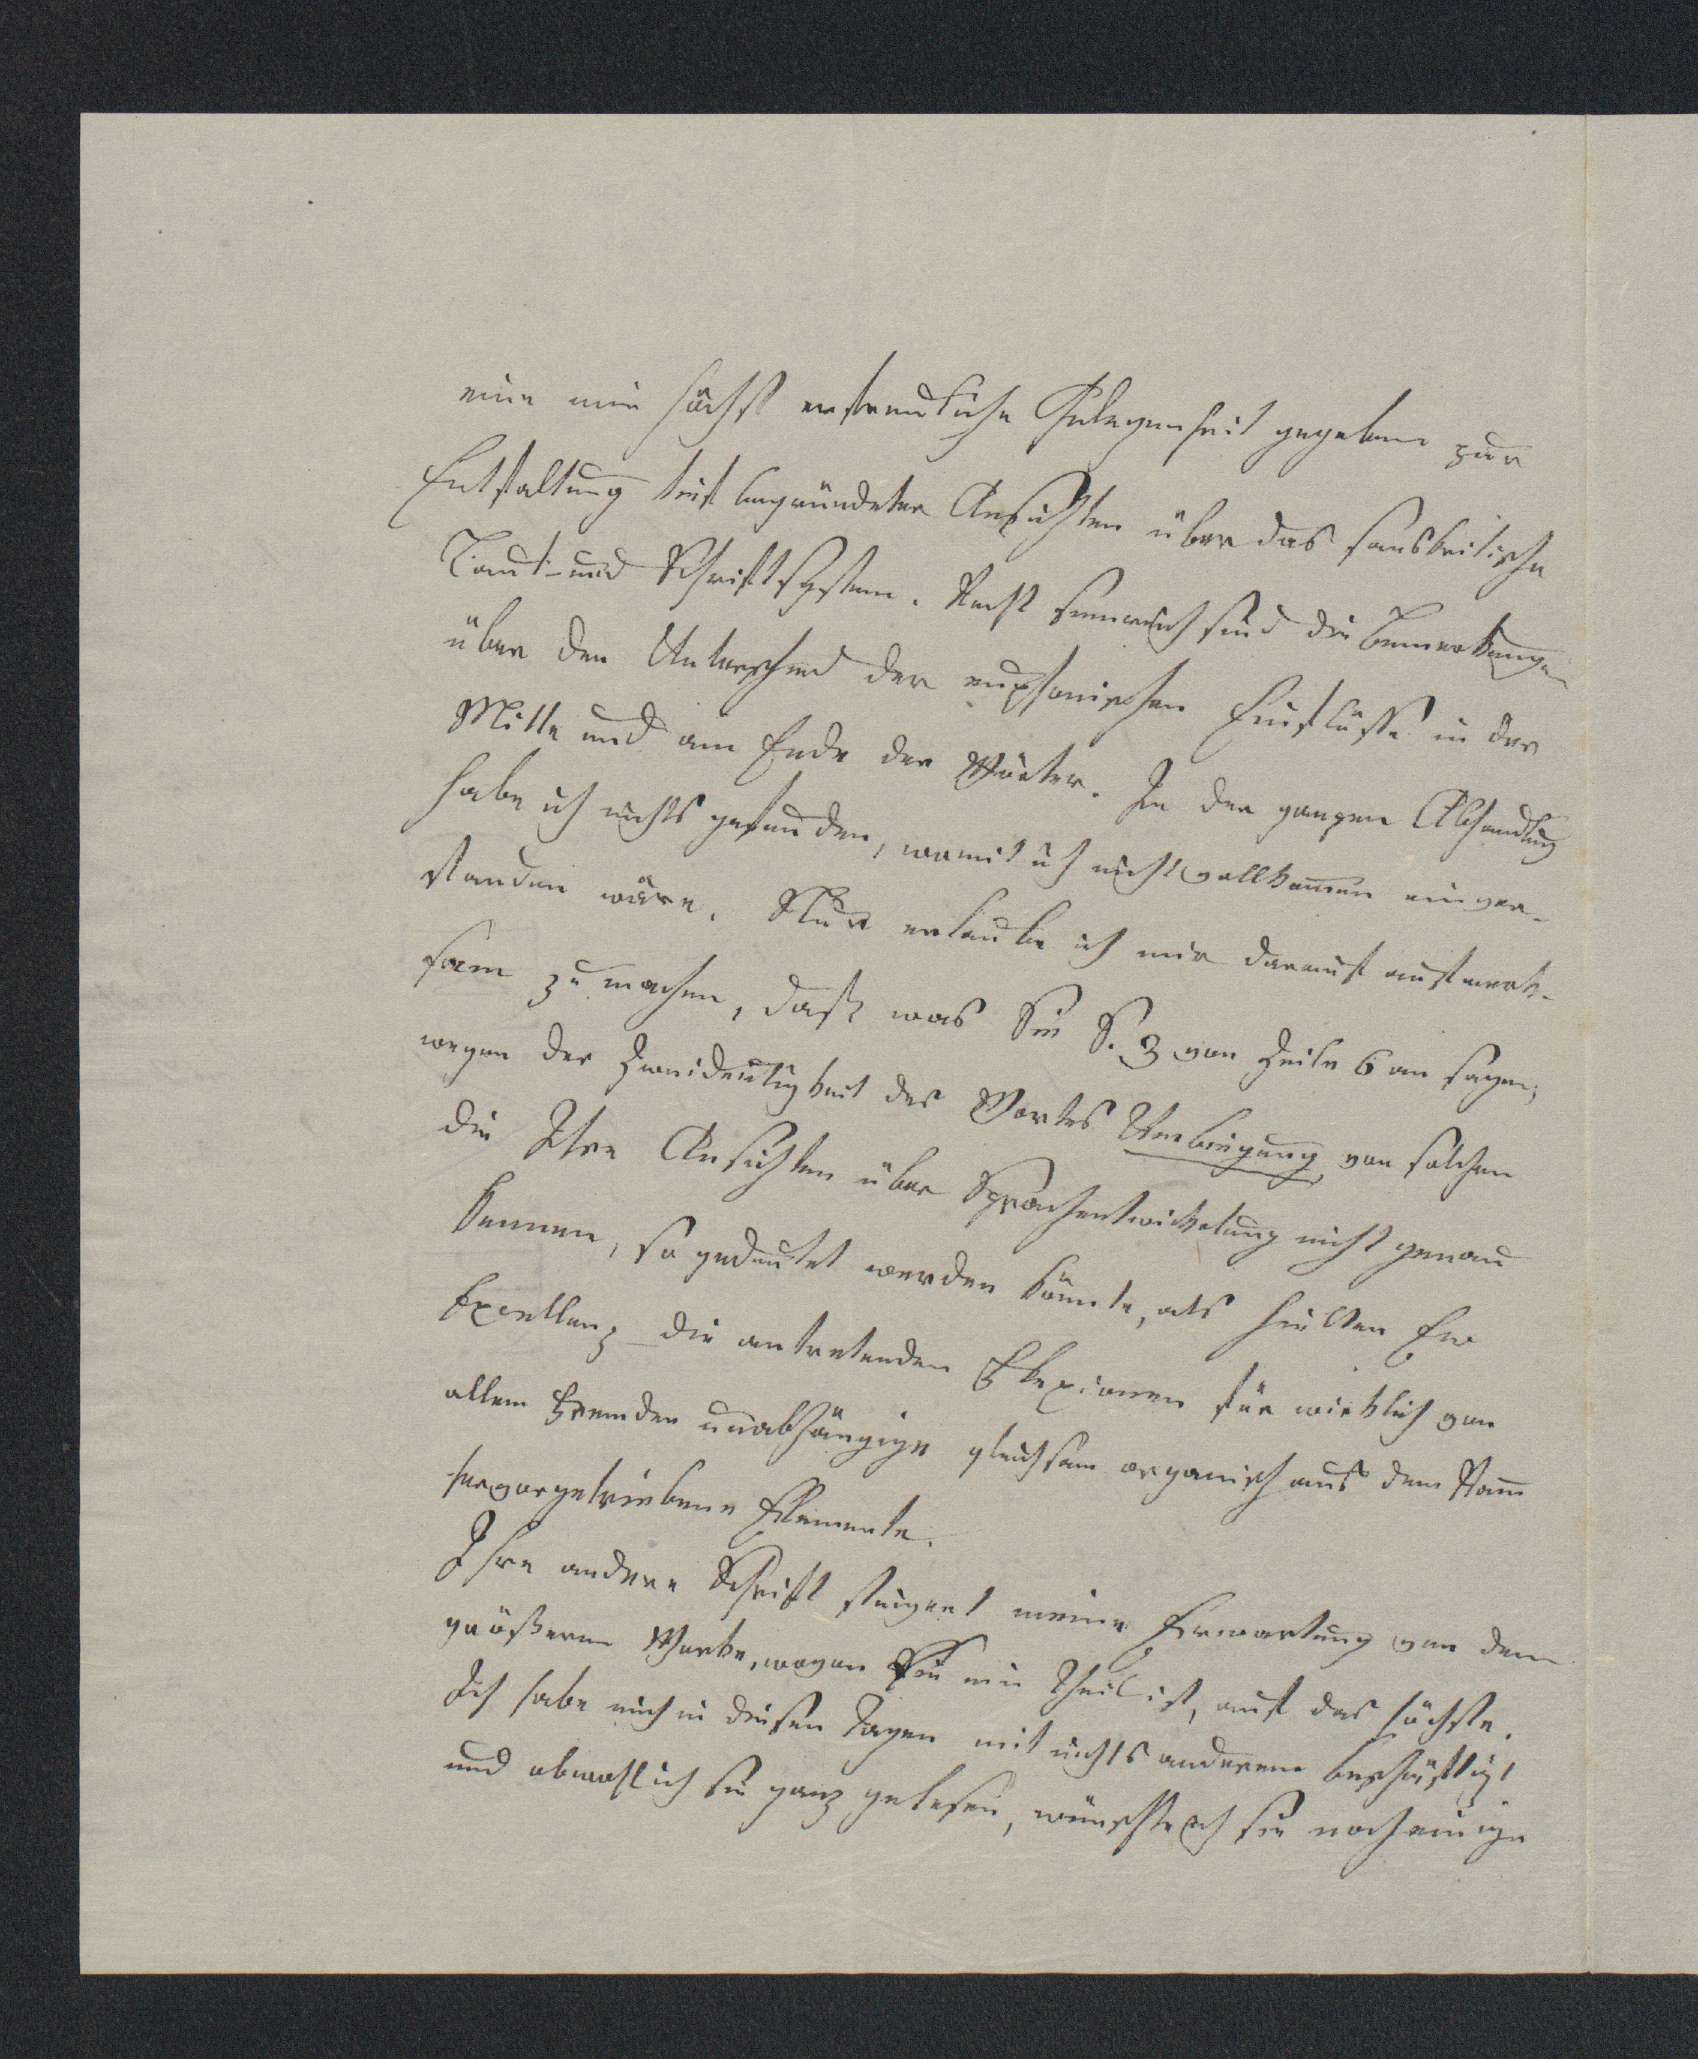 eine mir höchst erfreuliche Gelegenheit gegeben zur
Entfaltung tief begründeter Ansichten über das sanskritische
Laut- und Schriftsystem. Recht sinnreich sind die Bemerkungen
über den Unterschied der euphonischen Einflüsse in der
Mitte und am Ende der Wörter. In der ganzen Abhandlung
habe ich nichts gefunden, womit ich nicht vollkommen einver-
standen wäre. Nur erlaube ich mir darauf aufmerk-
sam zu machen, daß was Sie S. 3 von Zeile 6 an sagen,
wegen der Zweideutigkeit des Wortes Umbiegung von solchen
die Ihre Ansichten über Sprachentwickelung nicht genau
kennen, so gedeutet werden könnte, als hielten Ew
Excellenz die antretenden Flexionen für wirklich von
allem Fremden unabhängige gleichsam organisch aus dem Stamm
hervorgetriebene Elemente.
Ihre andere Schrift steigert meine Erwartung von dem
größeren Werke, wovon sie ein Theil ist, auf das höchste.
Ich habe mich in diesen Tagen mit nichts anderem beschäftigt
und obwohl ich sie ganz gelesen, wünschte ich sie noch einige